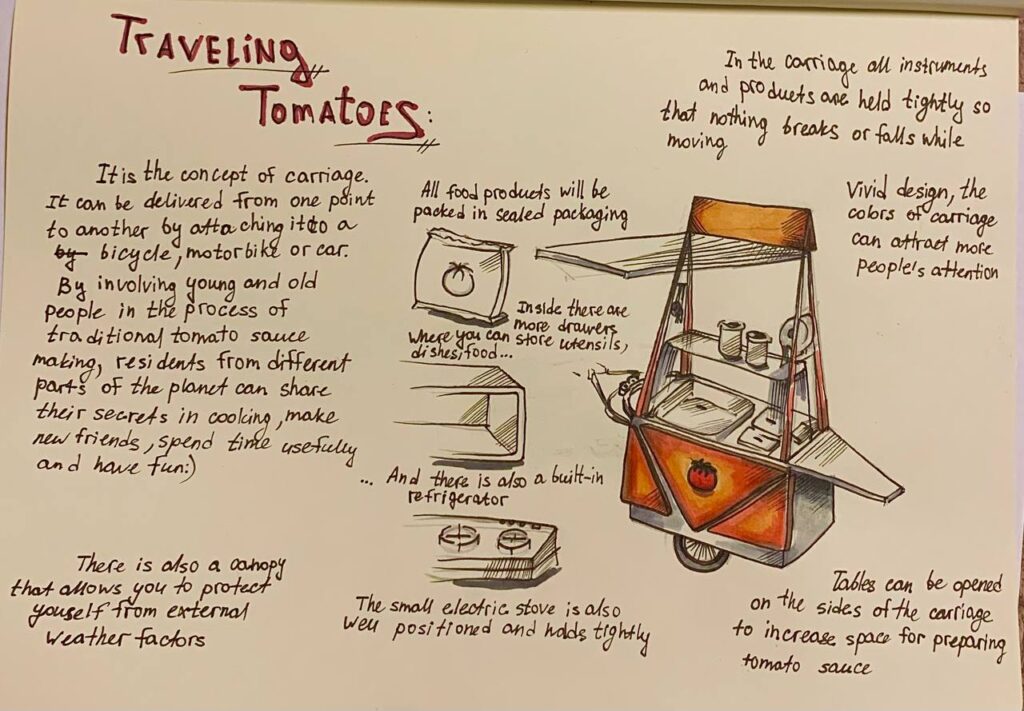 TRAVELING
TOMATOES:
It is the concept of carriage.
It can be delivered from one point
to another by attaching it to a
by bicycle, motorbike or car.
By involving young and old
people in the process of
traditional tomato sauce
making, residents from different
parts of the planet can share
their secrets in cooking, make
new friends, spend time usefully
and have fun:)
There is also a canopy
that allows you to protect
youself from external
weather factors
All food products will be
packed in sealed packaging
Inside there are
more drawers
where you can store utensils,
dishes, food...
... And there is also a built-in
refrigerator
The small electric stove is also
well positioned and holds tightly
In the carriage all instruments
and products are held tightly so
that nothing breaks or falls while
moving
Vivid design, the
colors of carriage
can attract more
people's attention
Tables can be opened
on the sides of the carriage
to increase space for preparing
tomato sauce